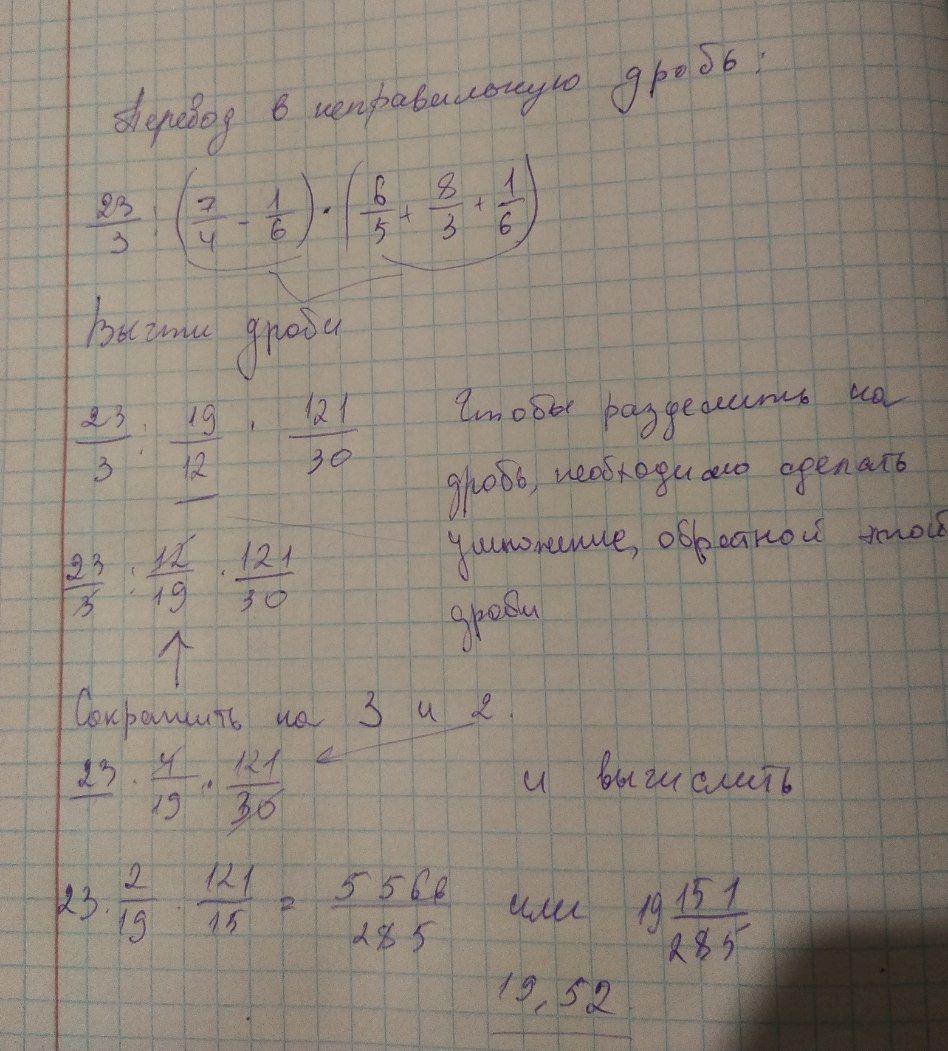 Перевод в неправильную дробь:
23/3 : (7/4 - 1/6) · (6/5 + 8/3 + 1/6)
Вычти дроби
23/3 : 19/12 · 121/30
Чтобы разделить на
дробь, необходимо сделать
умножение, обратной этой
дроби
23/3 · 12/19 · 121/30
Сократить на 3 и 2.
23 · 4/19 · 121/30
и вычислить
23 · 2/19 · 121/15 = 5566/285 или 19 151/285
19,52